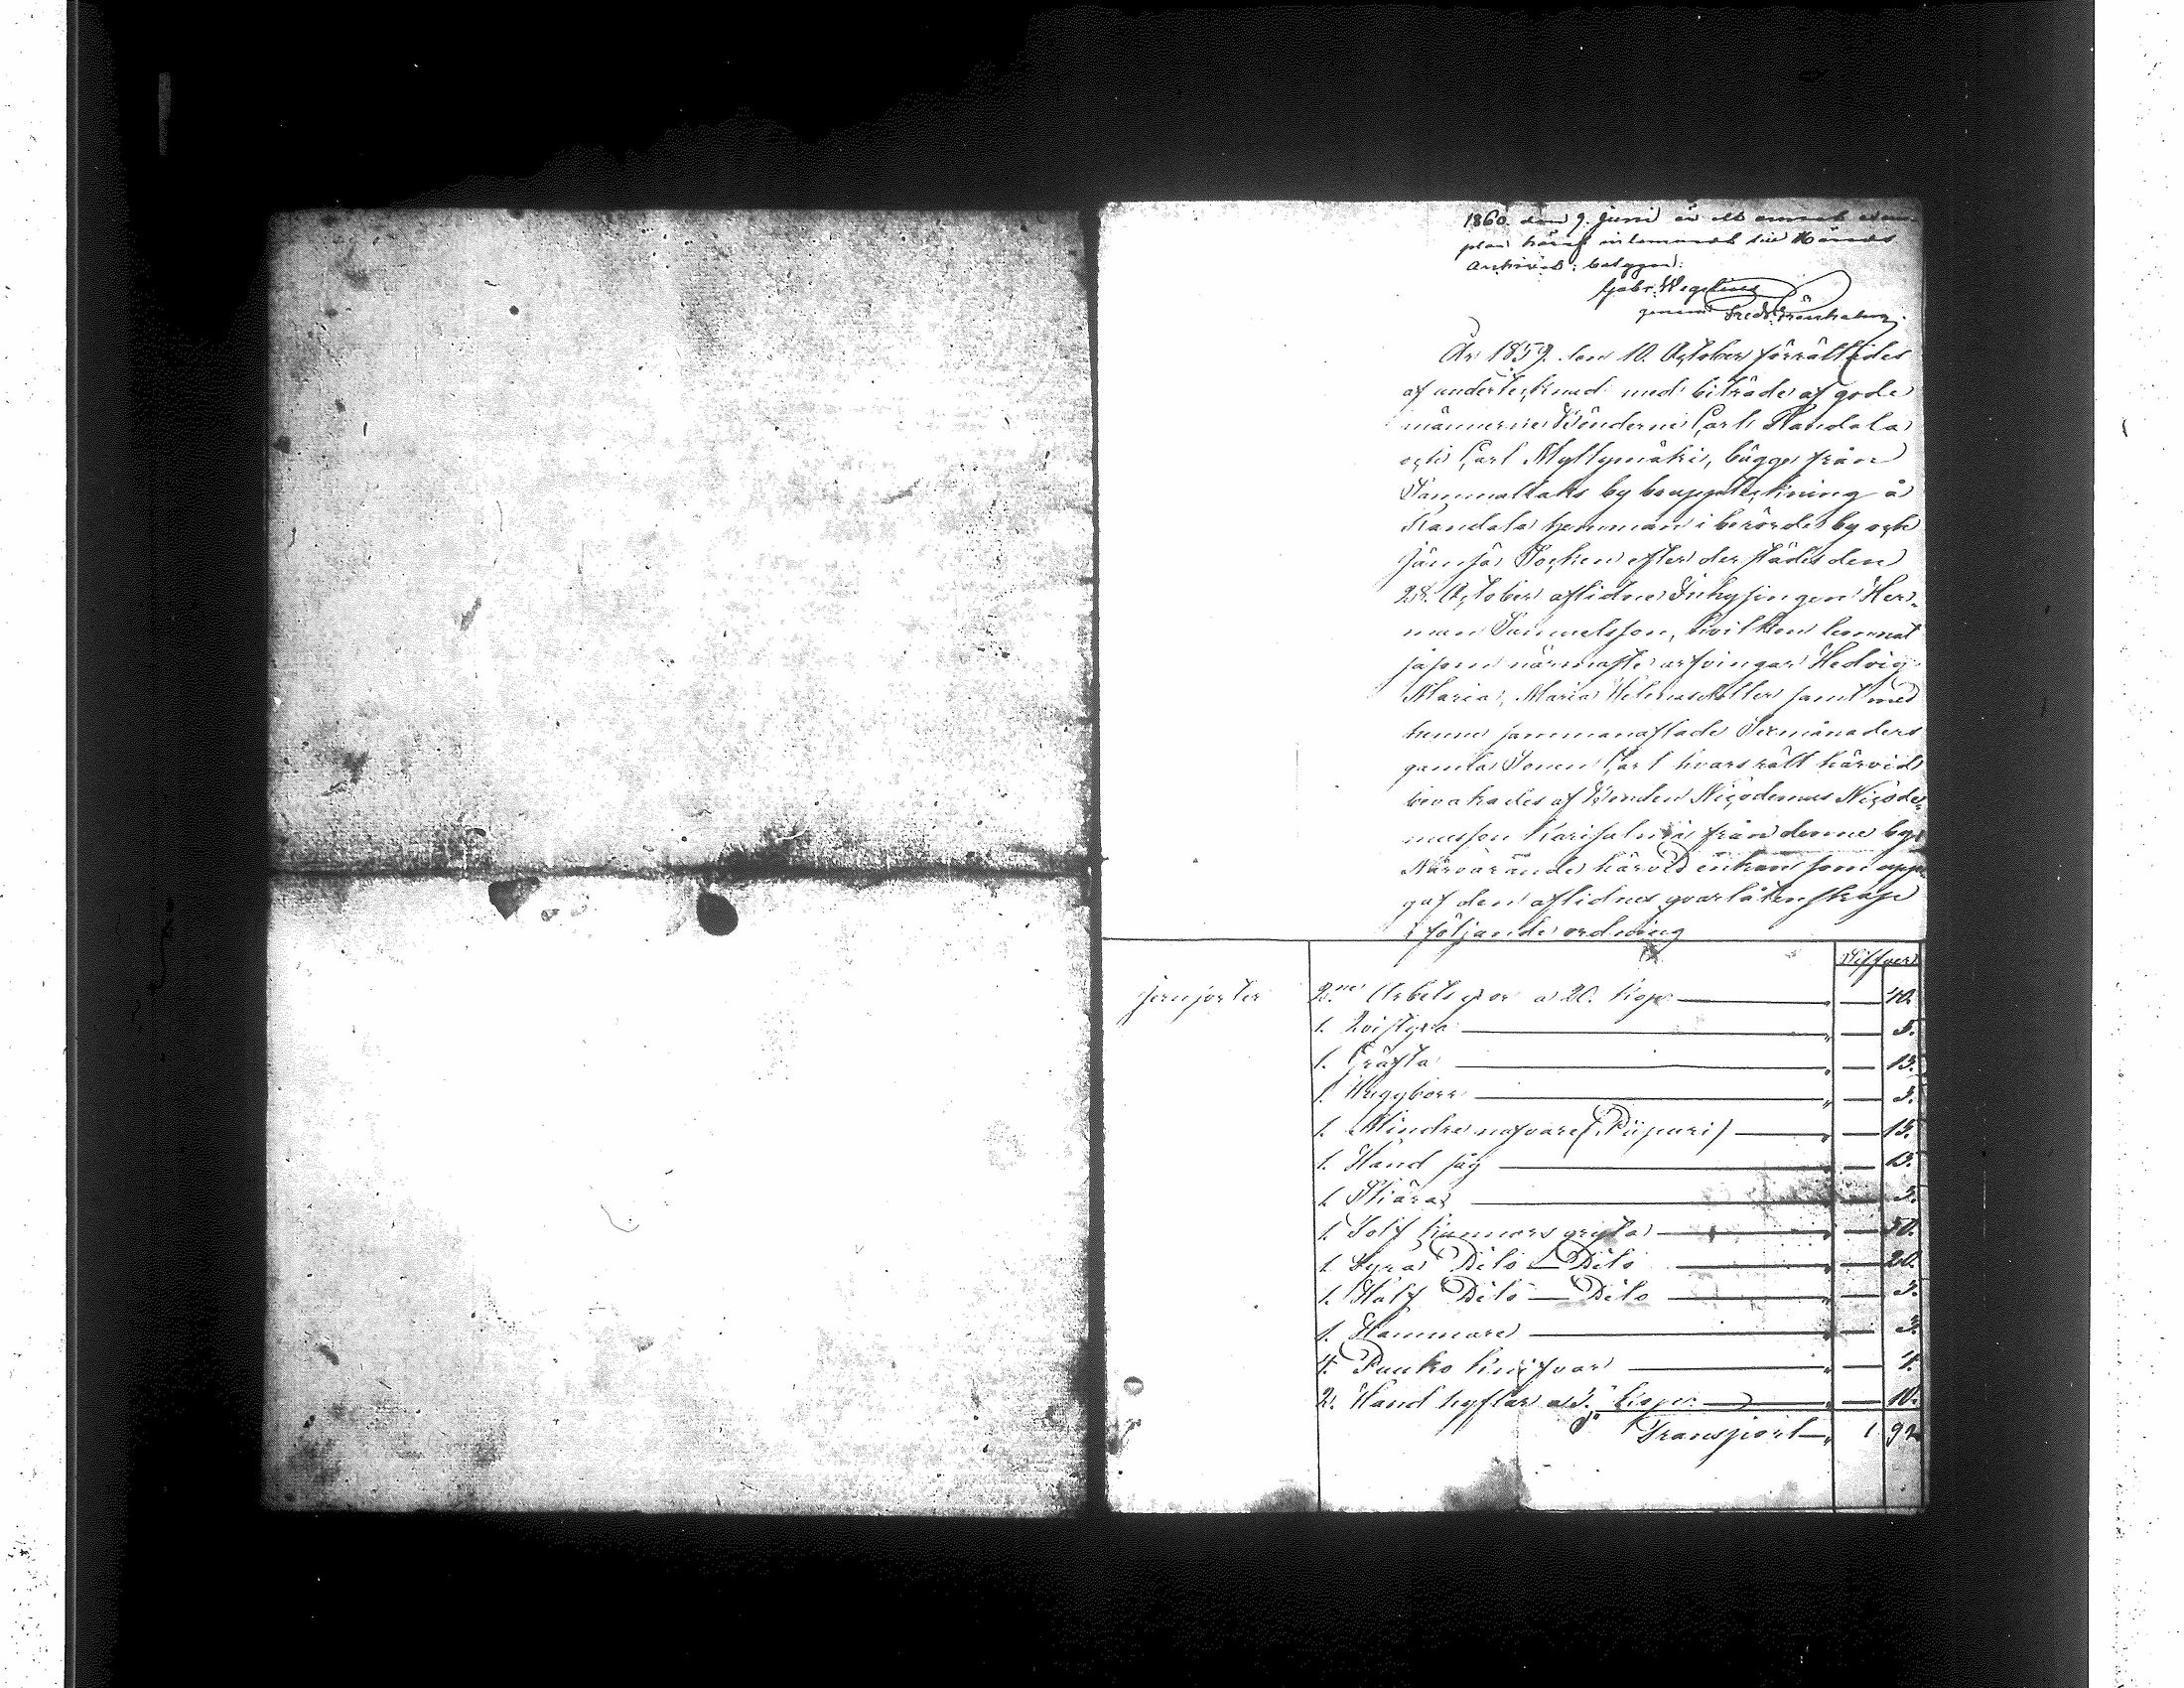 1860 den 9. Juni är ett annat exem-
plar häraf inlemnadt till Härads
Archivet; betygar:
Gabr. Wegelius
genom Fredr.
År 1859. den 10. October förrättades
af undertecknad med biträde af gode
männerne Bönderne Carl Kandala
och Carl Myllymäki, bägge från
Sammallaks by bouppteckning å
Kandala hemman i berörde by och
Jämsä Socken efter der städes den
28. October aflidne Inhysingen Her-
man Samuelsson, hvilken lemnat
såsom närmaste arfvingar Hedvig
Maria, Maria Helenas dotter samt med
henne sammanaflade Sexmånaders
gamla Sonen Carl hvars rätt härvid
bevakades af Bonden Nicodemus Nicode-
musson från denne by.
Närvarande härvid enkan som upp-
gaf den aflidnes qvarlåtenskap
i följande ordning
Silfver
Jernsorter 2.ne Arbets yxor a 20. Kop. " — 40.
1. Qvistyxa " — 5.
1. " — 15.
1. Wäggborr " — 3.
1. Mindre nafvare (Piipuri) " — 15.
1. Hand såg " — 15.
1. Skära " — 3.
1. Tolf kannors gryta " — 50.
1. Fyra Dito — Dito " — 20.
1. Half Dito — Dito " — 3.
1. Hammare " — 3.
4. Puuko knifvar " — 4.
2. Hand hyflar a 5. kop. " — 10.
Transport " 1 92